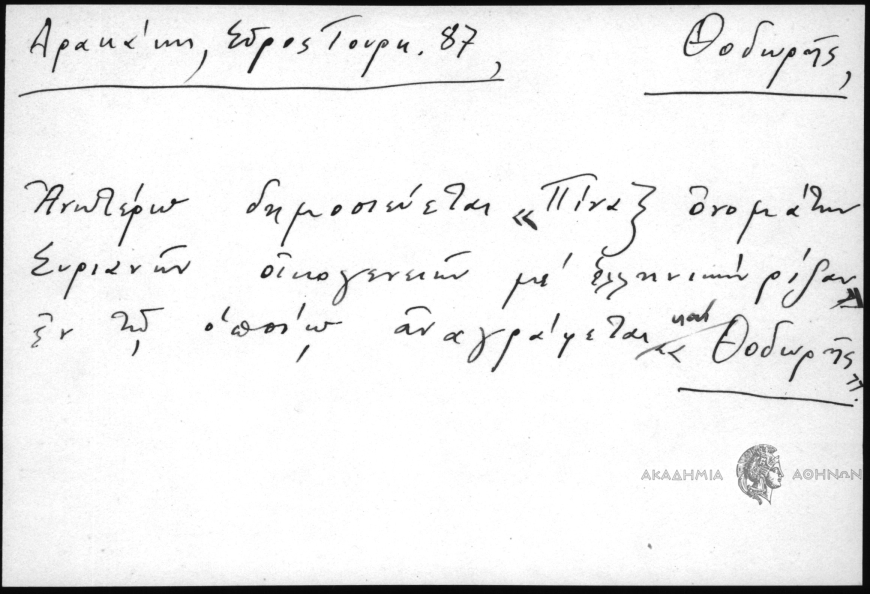 Δρακάκη, Σῦρος Τουρκ. 87, Θοδωρῆς,
Ἀνωτέρω δημοσιεύεται «Πίναξ ὀνομάτων
Συριανῶν οἰκογενειῶν μέ ἑλληνικήν ρίζαν»
ἐν τῷ ὁποίῳ ἀναγράφεται καί «Θοδωρῆς».
ΑΚΑΔΗΜΙΑ ΑΘΗΝΩΝ